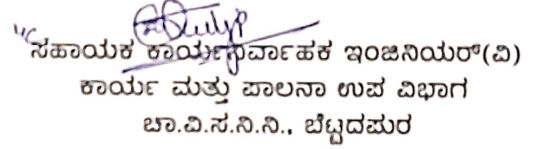 ಸಹಾಯಕ ಕಾರ್ಯನಿರ್ವಾಹಕ ಇಂಜಿನಿಯರ್(ವಿ)
ಕಾರ್ಯ ಮತ್ತು ಪಾಲನಾ ಉಪ ವಿಭಾಗ
ಚಾ.ವಿ.ಸ.ನಿ.ನಿ., ಬೆಟ್ಟದಪುರ